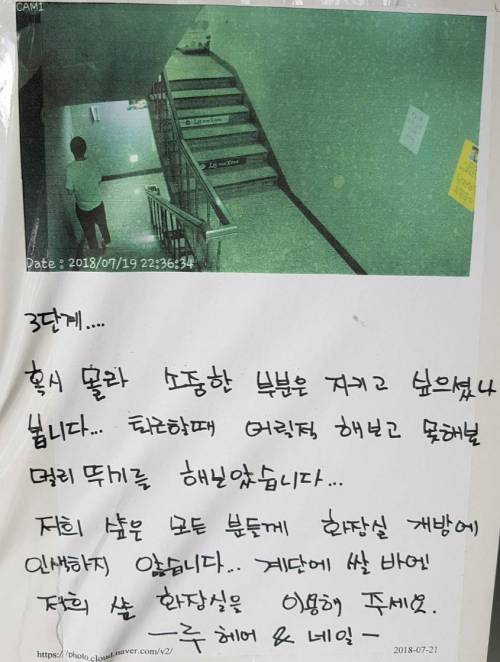 CAM1
Date : 2018/07/19 22:36:34
3단계....
혹시 몰라 소중한 부분은 지키고 싶으셨나
봅니다... 퇴근할때 어릴적 해보고 못해본
멀리 뛰기를 해보았습니다...
저희 샾은 모든 분들께 화장실 개방에
인색하지 않습니다... 계단에 쌀 바엔
저희 샾 화장실을 이용해 주세요.
ー루 헤어 & 네일ー
https://photo.cloud.naver.com/v2/ 2018-07-21